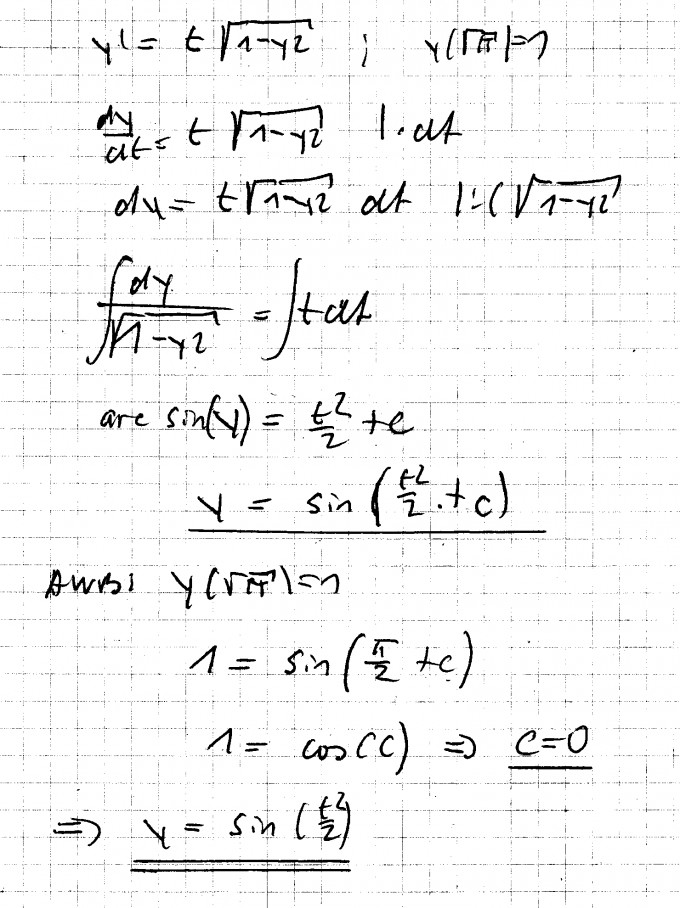 y' = t √(1-y²) ; y(√π)=1
dy/dt = t √(1-y²) |·dt
dy = t √(1-y²) dt |:(√(1-y²)
∫ dy/√(1-y²) = ∫ t dt
arc sin(y) = t²/2 + c
y = sin (t²/2 + c)
AWB: y(√π)=1
1 = sin (π/2 + c)
1 = cos(c) ⇒ c=0
⇒ y = sin (t²/2)